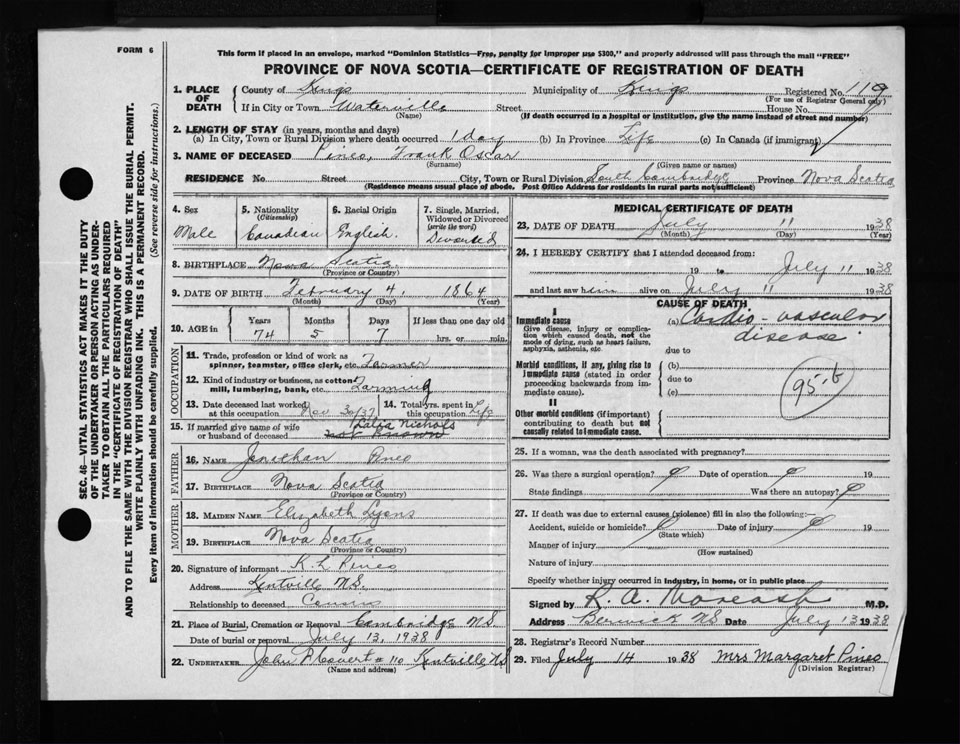 FORM 6
This form if placed in an envelope, marked "Dominion Statistics—Free, penalty for improper use $300," and properly addressed will pass through the mail "FREE"
PROVINCE OF NOVA SCOTIA—CERTIFICATE OF REGISTRATION OF DEATH
1. PLACE OF DEATH County of Kings Municipality of Kings Registered No. 119
(For use of Registrar General only)
If in City or Town Waterville Street House No.
(Name) (If death occurred in a hospital or institution, give the name instead of street and number)
2. LENGTH OF STAY (in years, months and days)
(a) In City, Town or Rural Division where death occurred 1 day (b) In Province Life (c) In Canada (if immigrant)
3. NAME OF DECEASED Pineo, Frank Oscar
(Surname) (Given name or names)
RESIDENCE No. Street City, Town or Rural Division South Cambridge Province Nova Scotia
(Residence means usual place of abode. Post Office Address for residents in rural parts not sufficient)
4. Sex Male
5. Nationality (Citizenship) Canadian
6. Racial Origin English.
7. Single, Married, Widowed or Divorced (write the word) Divorced
8. BIRTHPLACE Nova Scotia
(Province or Country)
9. DATE OF BIRTH February 4, 1864
(Month) (Day) (Year)
10. AGE in Years Months Days If less than one day old
74 5 7 hrs. or min.
OCCUPATION
11. Trade, profession or kind of work as spinner, teamster, office clerk, etc. Farmer
12. Kind of industry or business, as cotton mill, lumbering, bank, etc. Farming
13. Date deceased last worked at this occupation Nov 30/37
14. Total yrs. spent in this occupation Life
15. If married give name of wife or husband of deceased Nichols
not known
FATHER
16. NAME Jonathan Pineo
17. BIRTHPLACE Nova Scotia
(Province or Country)
MOTHER
18. MAIDEN NAME Elizabeth Lyons
19. BIRTHPLACE Nova Scotia
(Province or Country)
20. Signature of informant K. L Pineo
Address Kentville N.S.
Relationship to deceased
21. Place of Burial, Cremation or Removal Cambridge N.S.
Date of burial or removal July 13, 1938
22. UNDERTAKER John #110 Kentville N.S
(Name and address)
MEDICAL CERTIFICATE OF DEATH
23. DATE OF DEATH July 11 1938
(Month) (Day) (Year)
24. I HEREBY CERTIFY that I attended deceased from:
19 to July 11 1938
and last saw him alive on July 11 1938
CAUSE OF DEATH
I
Immediate cause
Give disease, injury or complication which caused death, not the mode of dying, such as heart failure, asphyxia, asthenia, etc
(a) Cardio-vascular disease
due to
Morbid conditions, if any, giving rise to immediate cause (stated in order proceeding backwards from immediate cause).
(b)
due to
(c)
95-b
II
Other morbid conditions (if important) contributing to death but not causally related to immediate cause.
25. If a woman, was the death associated with pregnancy?
26. Was there a surgical operation? Date of operation 19
State findings Was there an autopsy?
27. If death was due to external causes (violence) fill in also the following:—
Accident, suicide or homicide? Date of injury 19
(State which)
Manner of injury
(How sustained)
Nature of injury
Specify whether injury occurred in industry, in home, or in public place
Signed by R. A. M.D.
Address Berwick NS Date July 13 1938
28. Registrar's Record Number
29. Filed July 14 1938 Mrs Margaret Pineo
(Division Registrar)
SEC. 46—VITAL STATISTICS ACT MAKES IT THE DUTY
OF THE UNDERTAKER OR PERSON ACTING AS UNDER-
TAKER TO OBTAIN ALL THE PARTICULARS REQUIRED
IN THE "CERTIFICATE OF REGISTRATION OF DEATH"
AND TO FILE THE SAME WITH THE DIVISION REGISTRAR WHO SHALL ISSUE THE BURIAL PERMIT.
WRITE PLAINLY WITH UNFADING INK. THIS IS A PERMANENT RECORD.
Every item of information should be carefully supplied. (See reverse side for instructions.)